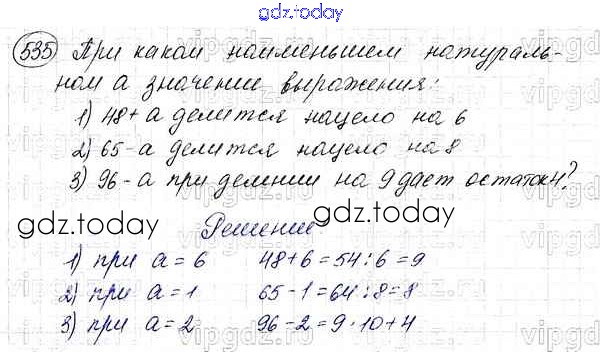 gdz.today
535 При каком наименьшем натураль-
ном а значение выражения:
1) 48+а делится нацело на 6
2) 65-а делится нацело на 8
3) 96-а при делении на 9 дает остаток 4?
gdz.today gdz.today
Решение
1) при а = 6 48+6=54:6=9
2) при а = 1 65-1=64:8=8
3) при а = 2 96-2=9·10+4